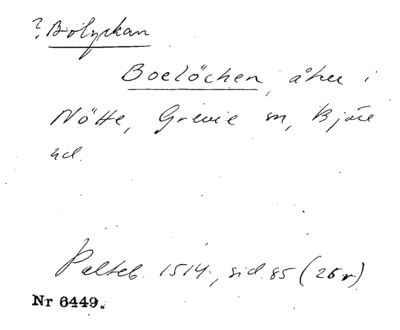 ? Bölyckan
Boelöchen, åker i
Nötte, Grevie sn, Bjäre
hd.
Palteb. 1514, sid. 85 (25r)
Nr 6449.